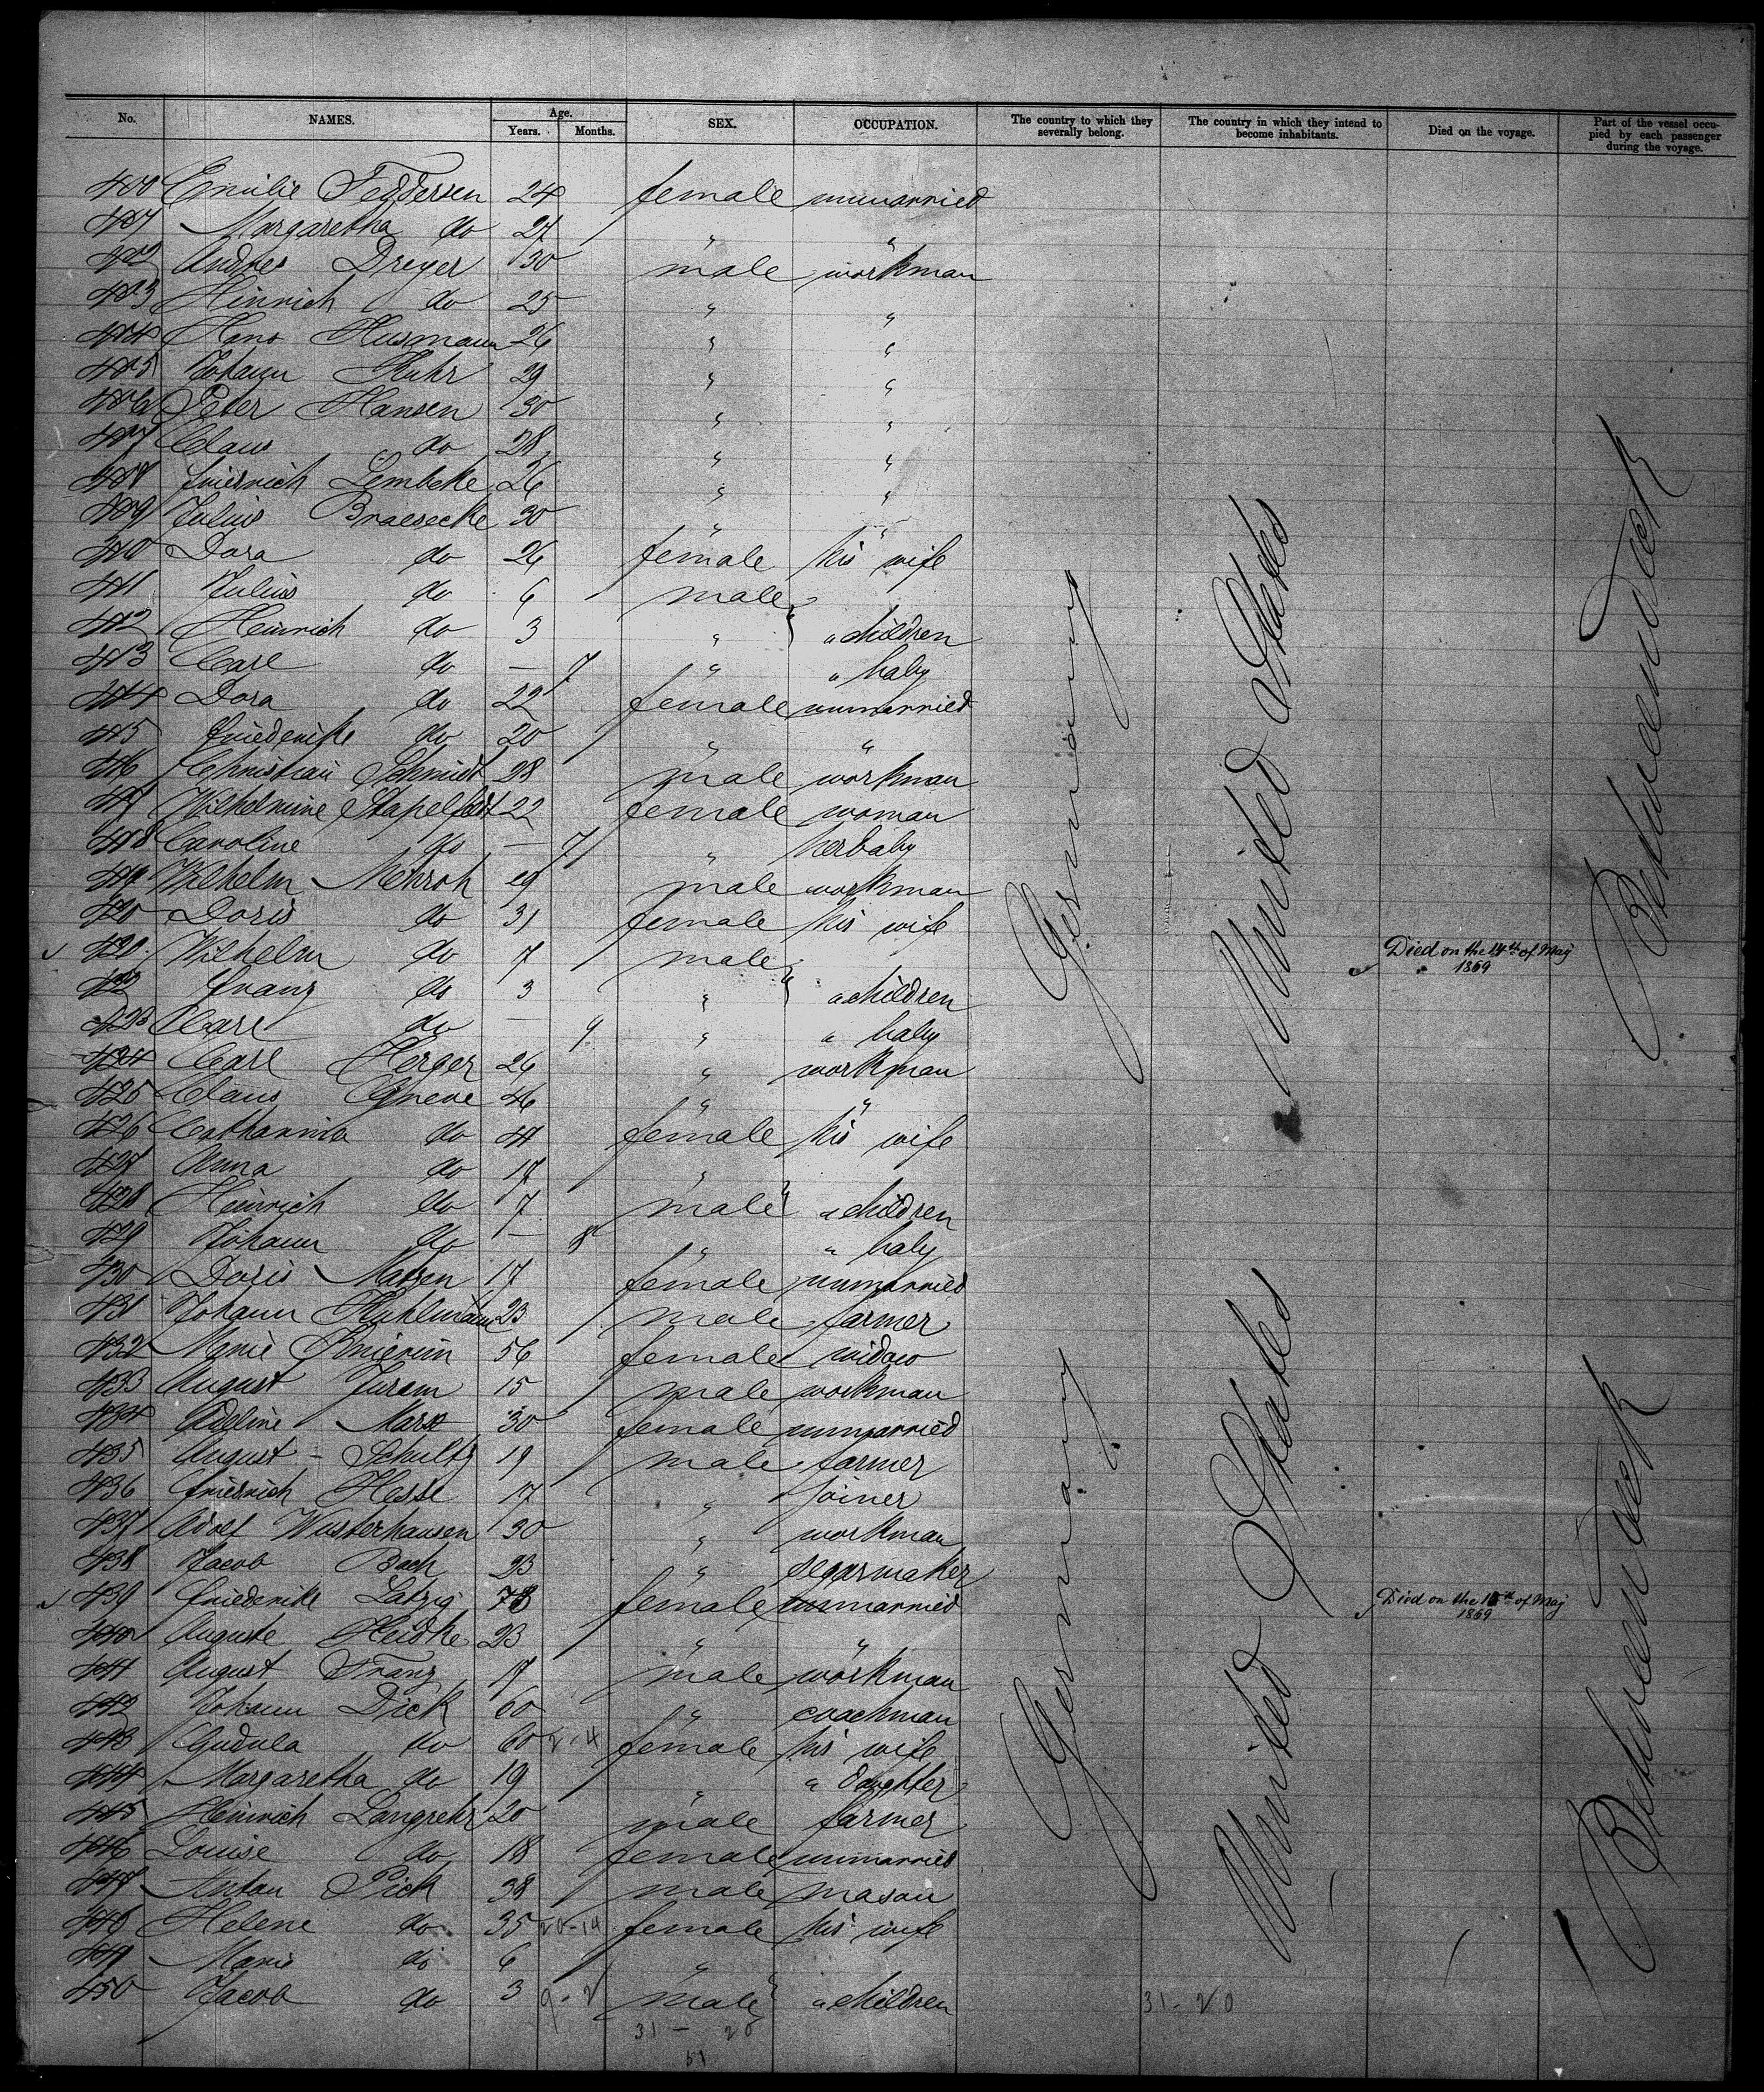 No. NAMES. Age. Years. Months. SEX. OCCUPATION. The country to which they severally belong. The country in which they intend to become inhabitants. Died on the voyage. Part of the vessel occupied by each passenger during the voyage.
400 Emilie Feddersen 24 female unmarried
401 Margaretha do 21 " "
402 Andres Dreyer 30 male workman
403 Hinrich do 25 " "
404 Hans Husmann 26 " "
405 Johann Kuhr 29 " "
406 Peter Hansen 30 " "
407 Claus do 28 " "
408 Friedrich Lembcke 26 " "
409 Julius Braesecke 30 " "
410 Dora do 26 female his wife
411 Julius do 6 male
412 Heinrich do 3 " " children
413 Carl do — 7 " " baby
414 Dora do 22 female unmarried
415 Friederike do 20 " "
416 Christian Schmidt 28 male workman
417 Wilhelmine Stapelfeldt 22 female woman
418 Caroline do — 7 " her baby
419 Wilhelm Mehroh 29 male workman
420 Doris do 31 female his wife
421 Wilhelm do 7 male Died on the 14th of May 1869
422 Franz do 3 " " children
423 Carl do — 9 " " baby
424 Carl Herger 26 " workman
425 Claus Greve 46 " "
426 Catharina do 41 female his wife
427 Anna do 17 "
428 Heinrich do 7 male " children
429 Johann do — 8 " " baby
430 Doris Matzen 17 female unmarried
431 Johann Kuhlmann 23 male farmer
432 Marie 56 female widow
433 August 15 male workman
434 Adeline Marx 30 female unmarried
435 August Schultz 19 male farmer
436 Friedrich Hesse 17 " joiner
437 Adolf Wusterhausen 30 " workman
438 Jacob Bach 23 " segarmaker
439 Friederike Latzig 78 female unmarried Died on the 15th of May 1869
440 Auguste Heidke 23 " "
441 August Franz 17 male workman
442 Johann Dick 60 " coachman
443 Gudula do 60 2-4 female his wife
444 Margaretha do 19 " " daughter
445 Heinrich Langrehr 20 male farmer
446 Louise do 18 female unmarried
447 Anton Pick 38 male mason
448 Helene do 35 20-14 female his wife
449 Marie do 6 "
450 Jacob do 3 9-2 male " children
31 - 20 31-20
51
Germany United States Between Deck
Germany United States Between Deck